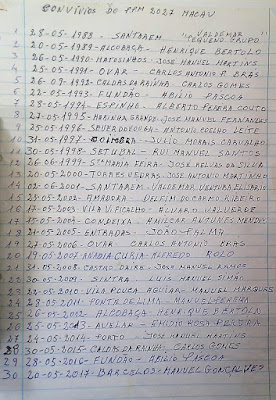 CONVÍVIOS DO PPM 2027 MACAU
1 28-05-1988 - SANTAREM "VALDEMAR
2 20-05-1989 - ALCOBAÇA - HENRIQUE BERTOLO
3 26-05-1990 - MATOSINHOS - JOSE MANUEL MARTINS
4 25-05-1991 - OVAR - CARLOS ANTONIO A BRAS
5 26-09-1992 - CALDAS DA RAINHA - CARLOS GOMES
6 22-05-1993 - FUNDÃO - ABILIO PASCOA
7 28-05-1994 - ESPINHO - ALBERTO PEREIRA COUTO
8 27-05-1995 - MARINHA GRANDE - JOSE MANUEL FERNANDES
9 25-05-1996 - SEVER DO VOUGA - ANTONIO COELHO LEITE
10 31-05-1997 - COIMBRA - JULIO MORAIS CARVALHO
11 30-05-1998 - SETUBAL - RUI MANUEL SANTOS
12 26-06-1999 - STª MARIA FEIRA - JOSE RELVAS DA SILVA
13 20-05-2000 - TORRES VEDRAS - JOSE ANTONIO MARTINHO
14 02-06-2001 - SANTAREM - VALDEMAR VENTURA ELISARIO
15 25-05-2002 - AMADORA - DELFIM DO CARMO RIBEIRO
16 17-05-2003 - VILA VIÇOSA - ALVARO VALVERDE
17 15-05-2004 - CONDEIXA - AMILCAR ANTUNES MENDES
18 21-05-2005 - ENTRADAS - JOÃO PALMA
19 27-05-2006 - OVAR CARLOS ANTONIO BRAS
20 19-05-2007 ANADIA CURIA ALFREDO ROLO
21 31-05-2008 - CASTRO DAIRE - JOSE MANUEL RAMOS
22 30-05-2009 - SINTRA - LUIS MANUEL SIMÃO
23 22-05-2010 - VILA POUCA AGUIAR - MANUEL MARQUES
24 28-05-2011 - PONTE DE LIMA - MANUEL
25 26-05-2012 - ALCOBAÇA - HENRIQUE BERTOLO
26 25-05-2013 - AVELAR - EMIDIO ROSA
27 24-05-2014 - PORTO - JOSE MANUEL MARTINS
28 30-05-2015 - CALDAS DA RAINHA - CARLOS GOMES
29 28-05-2016 - FUNDÃO - ABILIO PASCOA
30 20-05-2017 - BARCELOS - MANUEL GONÇALVES